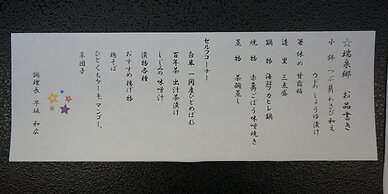 ☆ 瑞泉郷 お品書き
小鉢 つぶ貝わさび和え
うどのしょうゆ漬け
箸休め 甘露梅
造里 三点盛
鍋物 海鮮カレー鍋
焼物 赤魚ごぼう味噌焼き
蒸物 茶碗蒸し
セルフコーナー
白米 一関産ひとめぼれ
百年茶 出汁茶漬け
しじみの味噌汁
漬物各種
おすすめ揚げ物
鶏そば
ひとくちケーキ、マンゴー、
茶団子
調理長